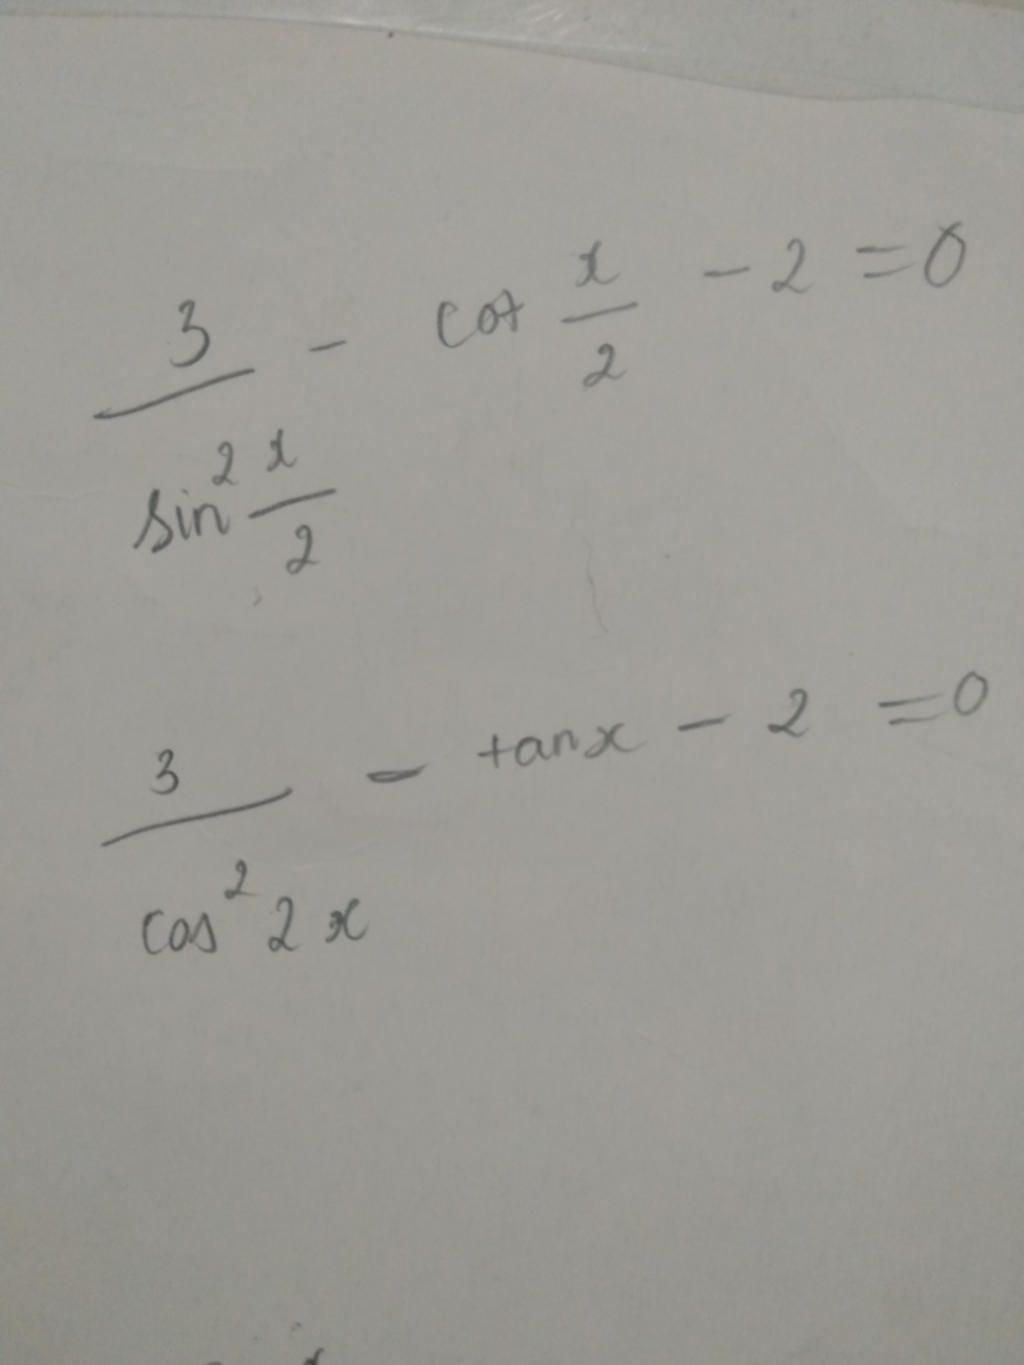 3/(sin² x/2) - cot x/2 - 2 = 0
3/(cos² 2x) - tanx - 2 = 0